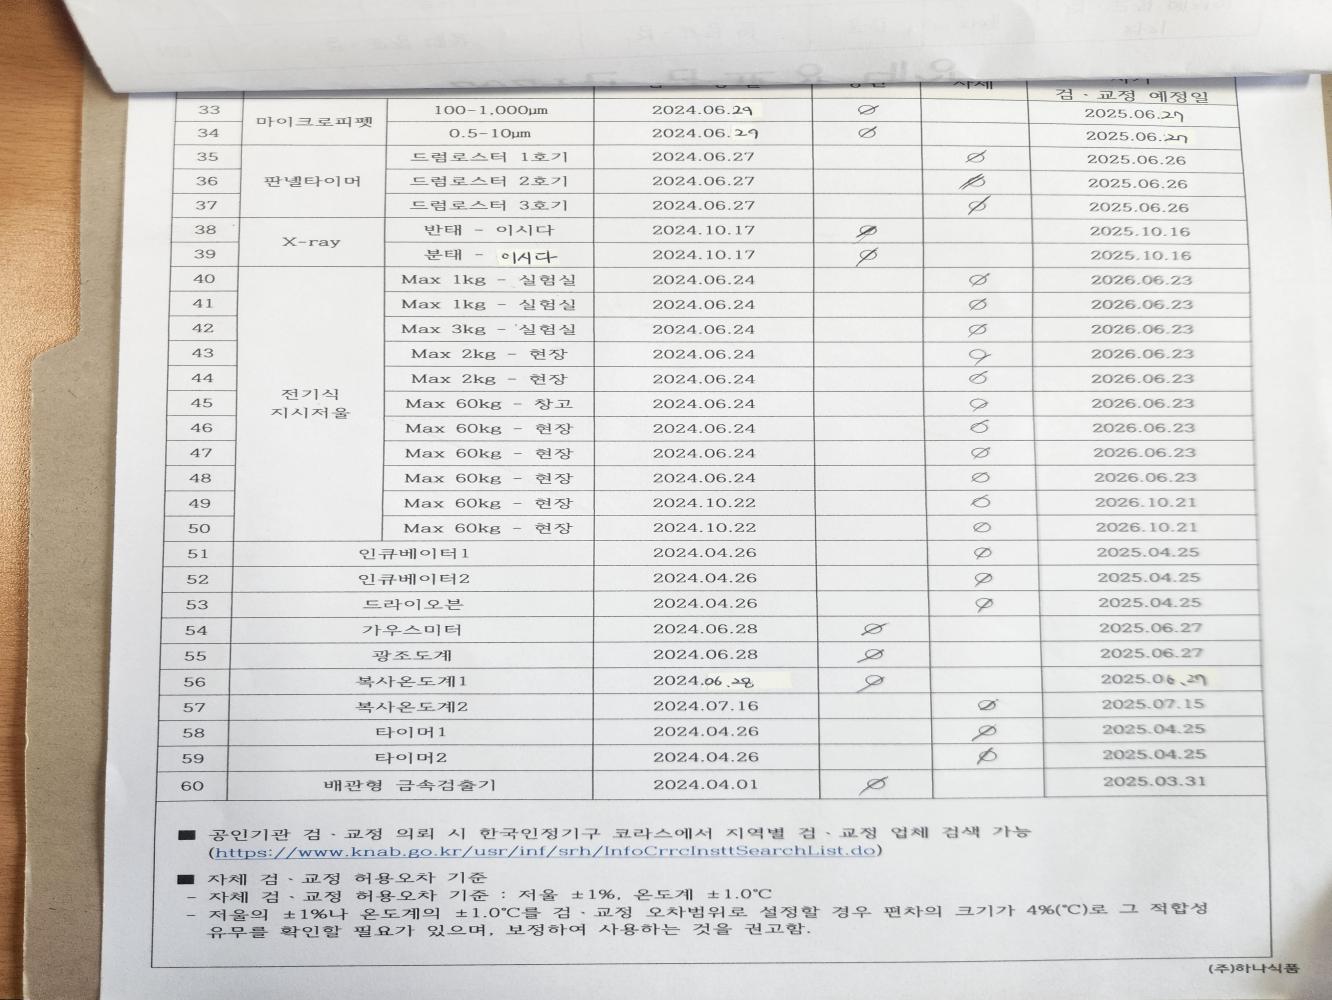 자체
차기
검·교정 예정일
33 마이크로피펫 100-1,000μm 2024.06.29 ∅ 2025.06.27
34 0.5-10μm 2024.06.29 ∅ 2025.06.27
35 판넬타이머 드럼로스터 1호기 2024.06.27 ∅ 2025.06.26
36 드럼로스터 2호기 2024.06.27 ∅ 2025.06.26
37 드럼로스터 3호기 2024.06.27 ∅ 2025.06.26
38 X-ray 반태 - 이시다 2024.10.17 ∅ 2025.10.16
39 분태 - 이시다 2024.10.17 ∅ 2025.10.16
40 전기식 지시저울 Max 1kg - 실험실 2024.06.24 ∅ 2026.06.23
41 Max 1kg - 실험실 2024.06.24 ∅ 2026.06.23
42 Max 3kg - 실험실 2024.06.24 ∅ 2026.06.23
43 Max 2kg - 현장 2024.06.24 ∅ 2026.06.23
44 Max 2kg - 현장 2024.06.24 ∅ 2026.06.23
45 Max 60kg - 창고 2024.06.24 ∅ 2026.06.23
46 Max 60kg - 현장 2024.06.24 ∅ 2026.06.23
47 Max 60kg - 현장 2024.06.24 ∅ 2026.06.23
48 Max 60kg - 현장 2024.06.24 ∅ 2026.06.23
49 Max 60kg - 현장 2024.10.22 ∅ 2026.10.21
50 Max 60kg - 현장 2024.10.22 ∅ 2026.10.21
51 인큐베이터1 2024.04.26 ∅ 2025.04.25
52 인큐베이터2 2024.04.26 ∅ 2025.04.25
53 드라이오븐 2024.04.26 ∅ 2025.04.25
54 가우스미터 2024.06.28 ∅ 2025.06.27
55 광조도계 2024.06.28 ∅ 2025.06.27
56 복사온도계1 2024.06.28 ∅ 2025.06.27
57 복사온도계2 2024.07.16 ∅ 2025.07.15
58 타이머1 2024.04.26 ∅ 2025.04.25
59 타이머2 2024.04.26 ∅ 2025.04.25
60 배관형 금속검출기 2024.04.01 ∅ 2025.03.31
■ 공인기관 검·교정 의뢰 시 한국인정기구 코라스에서 지역별 검·교정 업체 검색 가능
(https://www.knab.go.kr/usr/inf/srh/InfoCrrcInsttSearchList.do)
■ 자체 검·교정 허용오차 기준
- 자체 검·교정 허용오차 기준 : 저울 ±1%, 온도계 ±1.0℃
- 저울의 ±1%나 온도계의 ±1.0℃를 검·교정 오차범위로 설정할 경우 편차의 크기가 4%(℃)로 그 적합성
유무를 확인할 필요가 있으며, 보정하여 사용하는 것을 권고함.
(주)하나식품